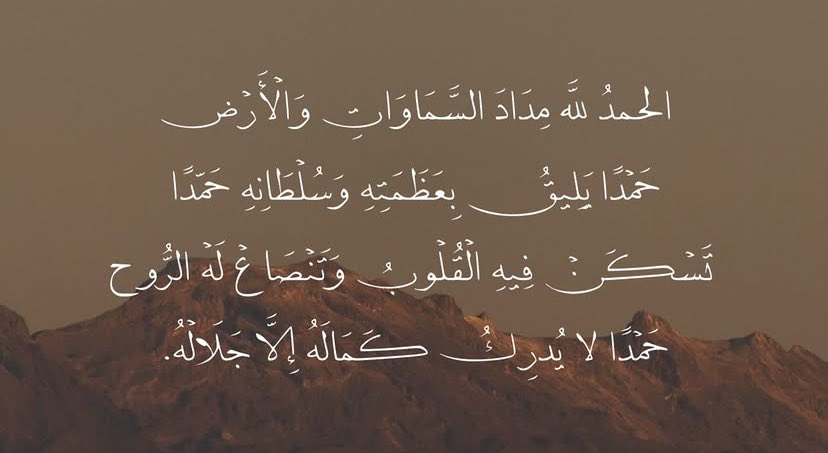 الحمدُ للَّه مِدَادَ السَّمَاوَاتِ وَالْأَرْض
حَمْدًا يَلِيقُ بِعَظَمَتِهِ وَسُلْطَانِهِ حَمْدًا
تَسْكَنْ فِيهِ الْقُلْوبُ وَتَنْصَاعْ لَهْ الرُّوح
حَمْدًا لا يُدرِكُ كَمَالَهُ إِلَّا جَلَالْهُ.